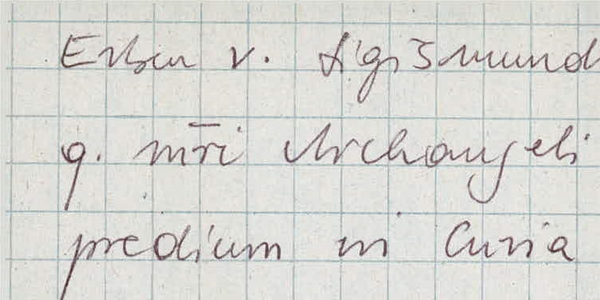 Erben v. Sigismund
q. mr̄i Archangeli
predium in Curia